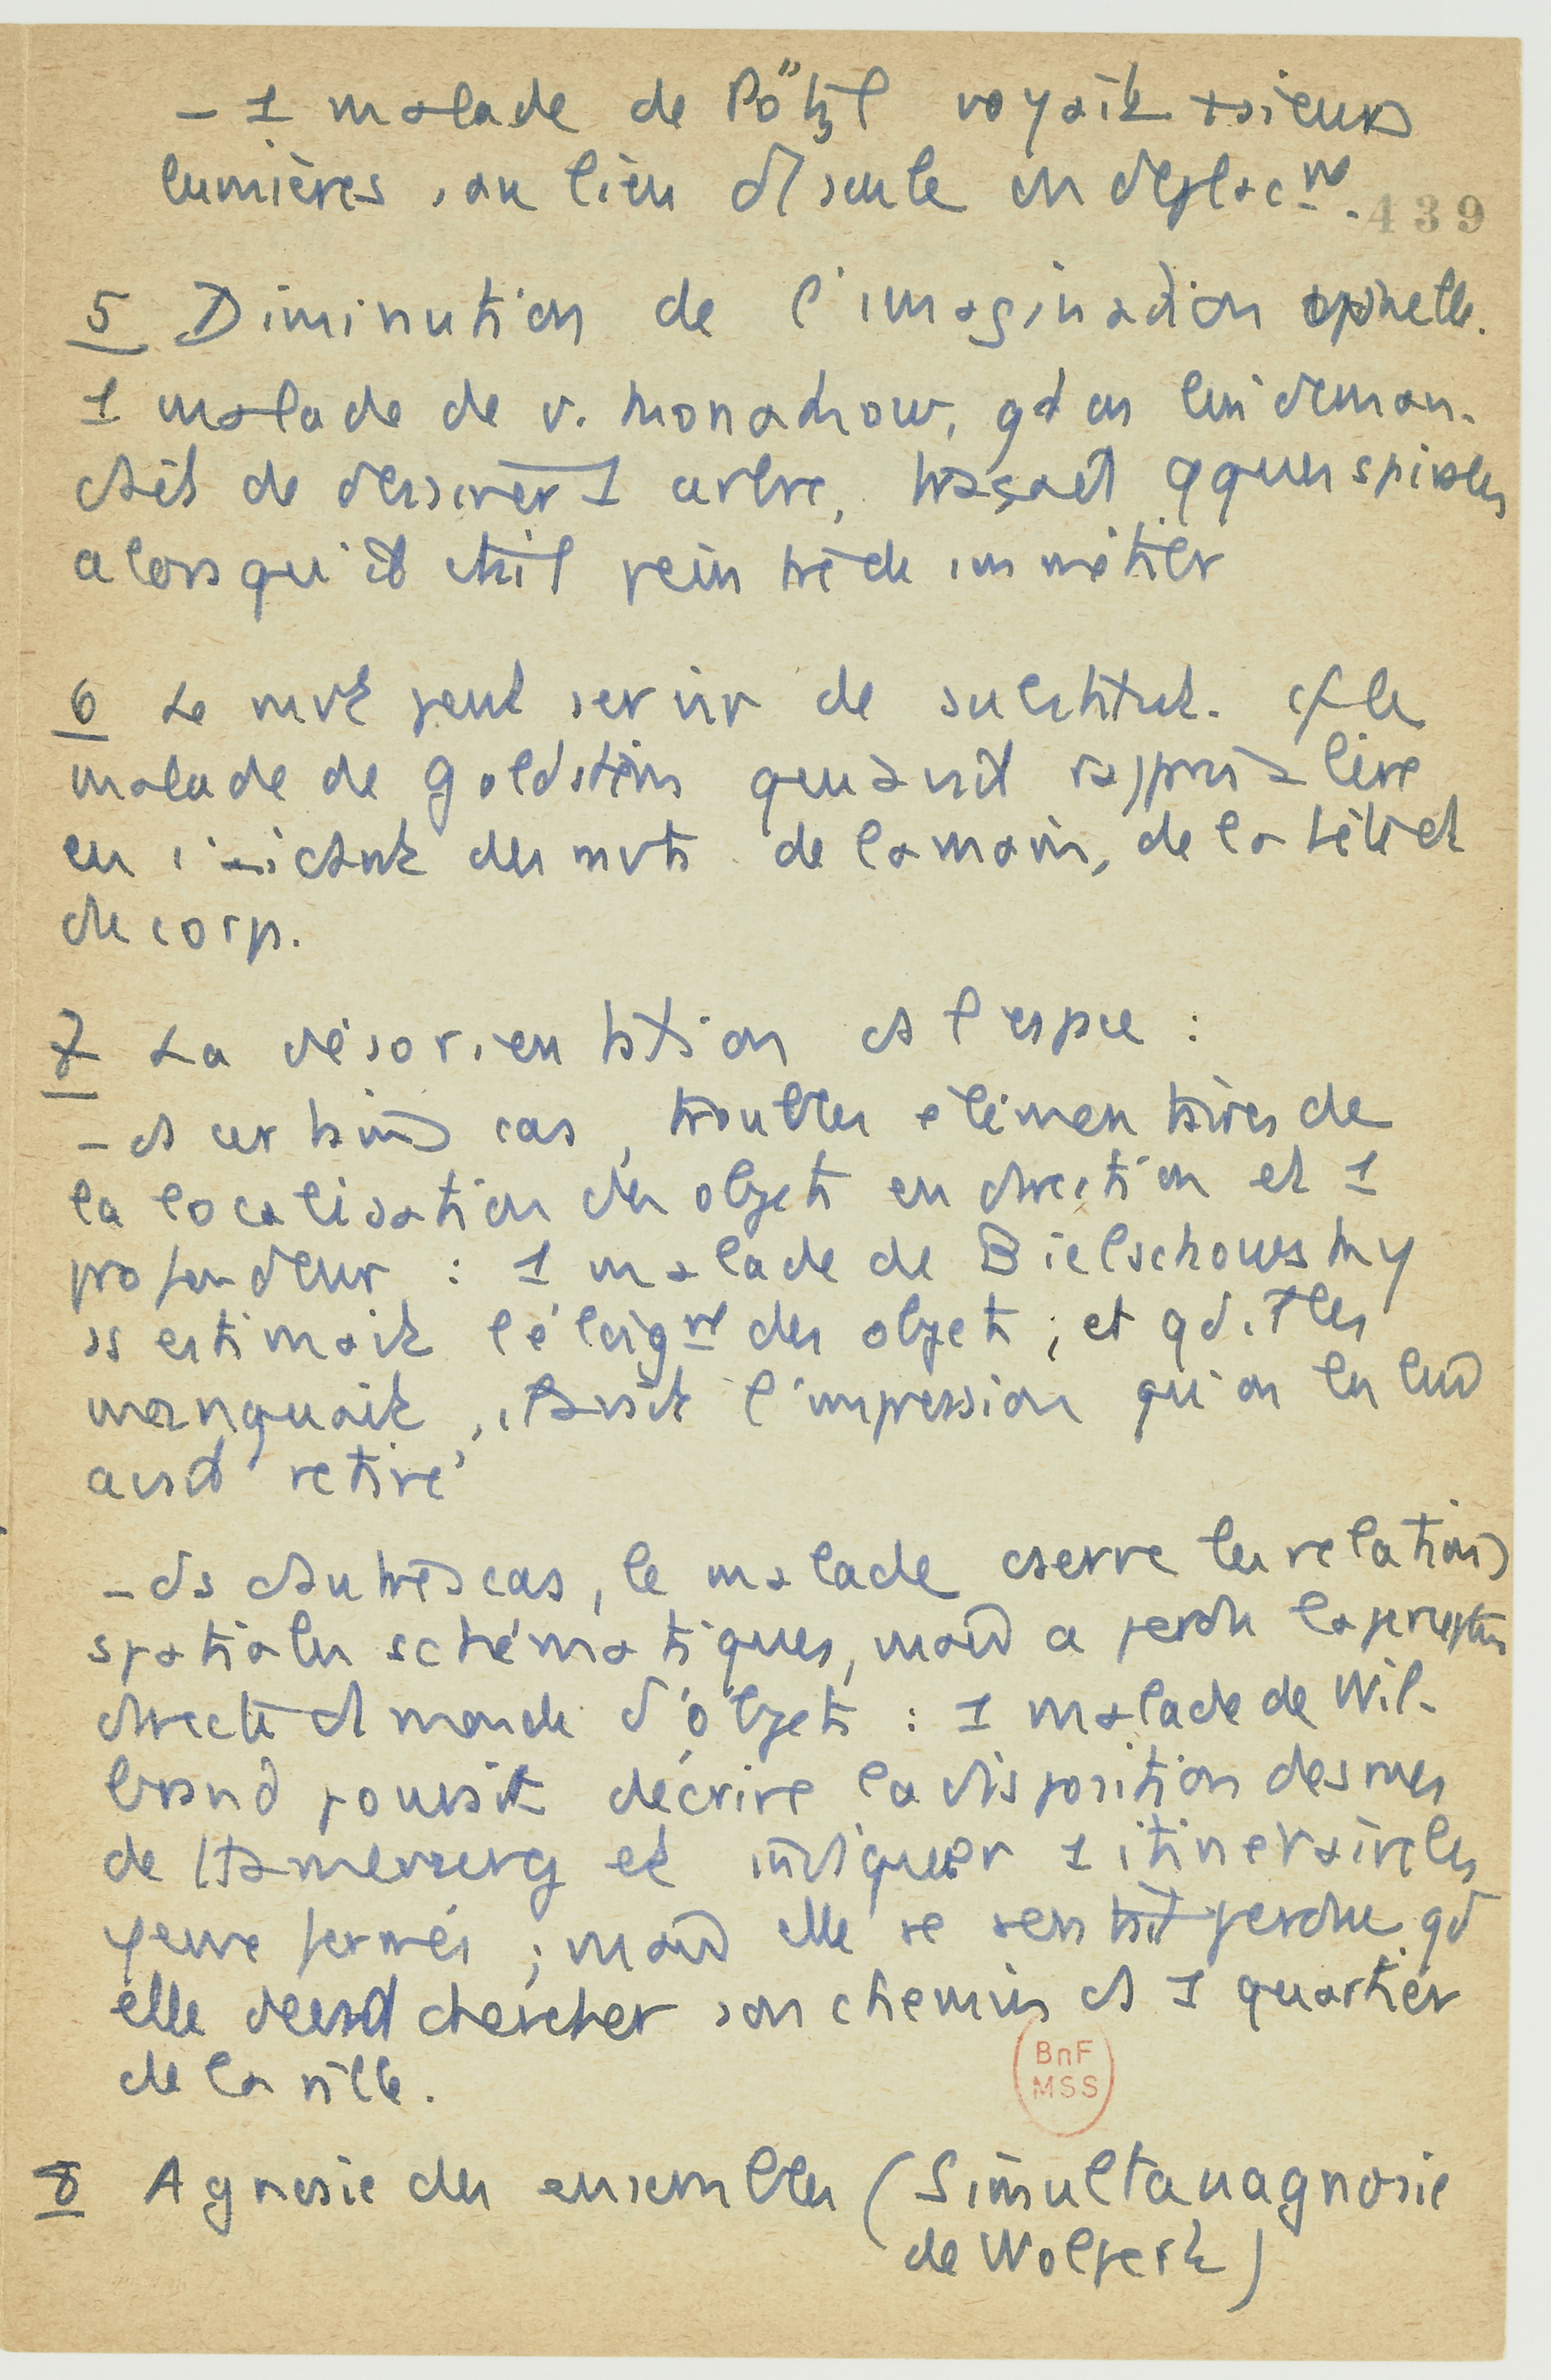 - 1 malade de Pötzl voyait +sieurs
lumières, au lieu d'1 seule en déplacnt.
439
5 Diminution de l'imagination optique
1 malade de v. Monakow, qd on lui deman-
dait de dessiner 1 arbre, traçait qques spirales
alors qu'il était peintre de son métier
6 Le mvt peut servir de substitut. cf le
malade de Goldstein qui avait rappris à lire
en s'aidant des mvts de la main, de la tête et
du corps.
7 La désorientation ds l'espace :
- ds certains cas, troubles élémentaires de
la localisation des objets en direction et
profondeur : 1 malade de Bielschowsky
ss estimait l'éloignt des objets ; et qd il les
manquait, il avait l'impression qu'on les lui
avait retiré
- ds d'autres cas, le malade cserve les relations
spatiales schématiques, mais a perdu la perception
directe du monde d'objets : 1 malade de Wil-
brand pouvait décrire la disposition des rues
de Hambourg et indiquer 1 itinéraire les
yeux fermés ; mais elle se sentait perdue qd
elle devait chercher son chemin ds 1 quartier
de la ville.
BnF
MSS
8 Agnosie des ensembles (Simultanagnosie
de Wolpert)